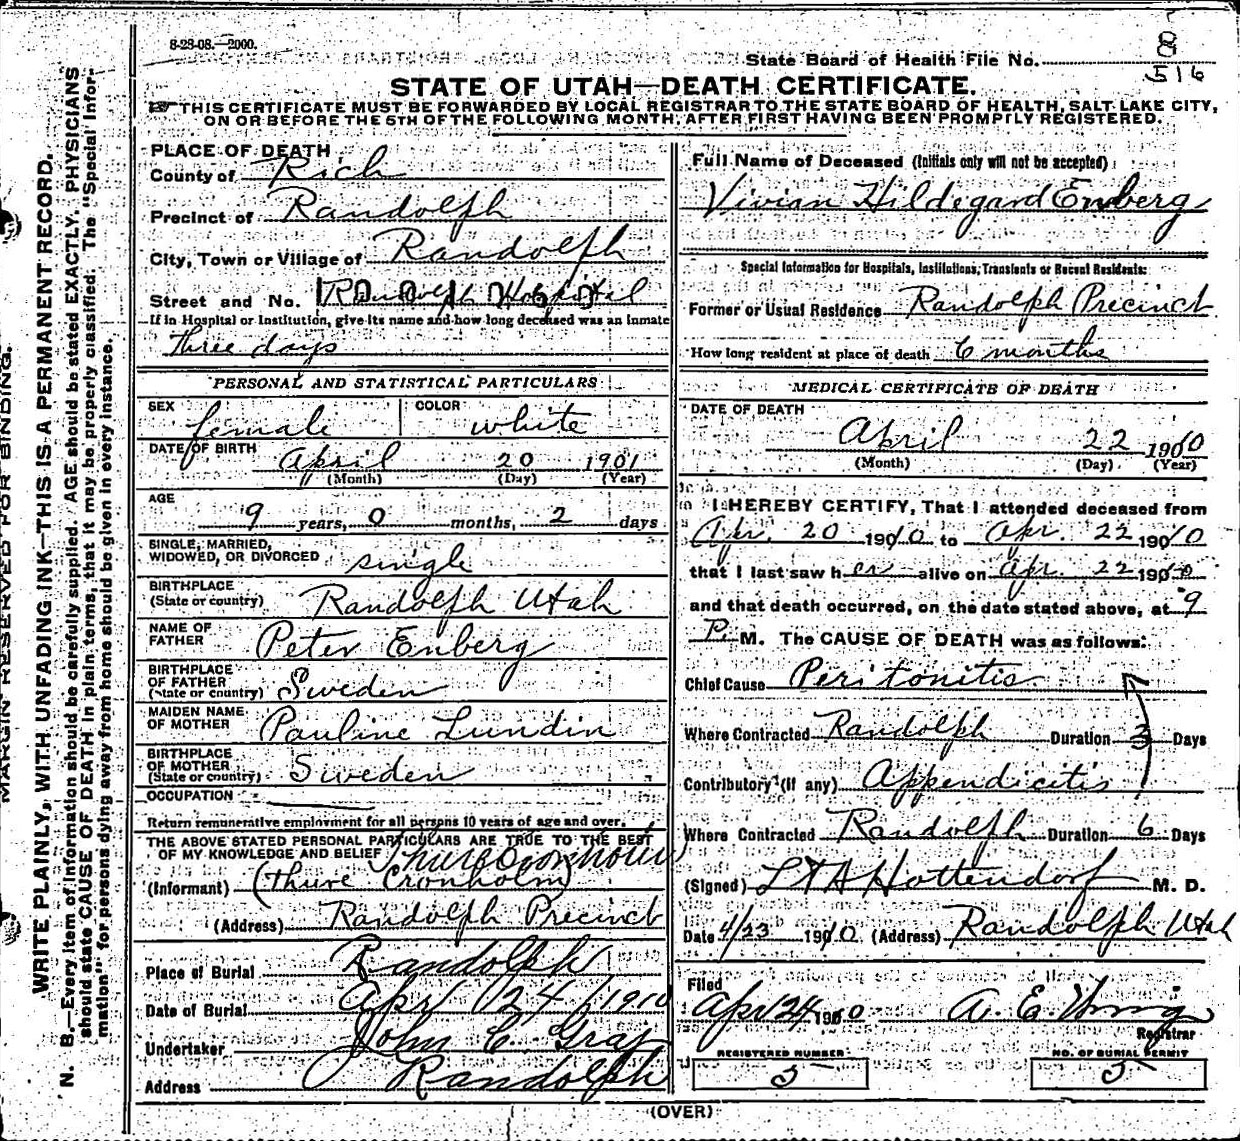 8-23-08.—2000.
State Board of Health File No.
8
516
STATE OF UTAH—DEATH CERTIFICATE.
THIS CERTIFICATE MUST BE FORWARDED BY LOCAL REGISTRAR TO THE STATE BOARD OF HEALTH, SALT LAKE CITY,
ON OR BEFORE THE 5TH OF THE FOLLOWING MONTH, AFTER FIRST HAVING BEEN PROMPTLY REGISTERED.
MARGIN RESERVED FOR BINDING.
WRITE PLAINLY, WITH UNFADING INK—THIS IS A PERMANENT RECORD.
N. B.—Every item of information should be carefully supplied. AGE should be stated EXACTLY. PHYSICIANS
should state CAUSE OF DEATH in plain terms, that it may be properly classified. The "Special Infor-
mation" for persons dying away from home should be given in every instance.
PLACE OF DEATH
County of Rich
Precinct of Randolph
City, Town or Village of Randolph
Street and No. Randolph Hospital
If in Hospital or Institution, give its name and how long deceased was an inmate
three days
PERSONAL AND STATISTICAL PARTICULARS
SEX female COLOR white
DATE OF BIRTH April 20 1901
(Month) (Day) (Year)
AGE
9 years, 0 months, 2 days
SINGLE, MARRIED,
WIDOWED, OR DIVORCED single
BIRTHPLACE
(State or country) Randolph Utah
NAME OF
FATHER Peter Enberg
BIRTHPLACE
OF FATHER
(State or country) Sweden
MAIDEN NAME
OF MOTHER Pauline Lundin
BIRTHPLACE
OF MOTHER
(State or country) Sweden
OCCUPATION
Return remunerative employment for all persons 10 years of age and over.
THE ABOVE STATED PERSONAL PARTICULARS ARE TRUE TO THE BEST
OF MY KNOWLEDGE AND BELIEF
(Informant) (Thure Cronholm)
(Address) Randolph Precinct
Place of Burial Randolph
Date of Burial Apr 24 1910
Undertaker John C Gray
Address Randolph
Full Name of Deceased (Initials only will not be accepted)
Vivian Hildegard Enberg
Special Information for Hospitals, Institutions, Transients or Recent Residents:
Former or Usual Residence Randolph Precinct
How long resident at place of death 6 months
MEDICAL CERTIFICATE OF DEATH
DATE OF DEATH
April 22 1910
(Month) (Day) (Year)
I HEREBY CERTIFY, That I attended deceased from
Apr. 20 1910 to Apr. 22 1910
that I last saw her alive on Apr. 22 1910
and that death occurred, on the date stated above, at 9
P. M. The CAUSE OF DEATH was as follows:
Chief Cause Peritonitis
Where Contracted Randolph Duration 3 Days
Contributory (if any) Appendicitis
Where Contracted Randolph Duration 6 Days
(Signed) Hottendorf M. D.
Date 4/23 1910 (Address) Randolph Utah
Filed
Apr 24 1910 A. E.
Registrar
REGISTERED NUMBER
5
NO. OF BURIAL PERMIT
5
(OVER)